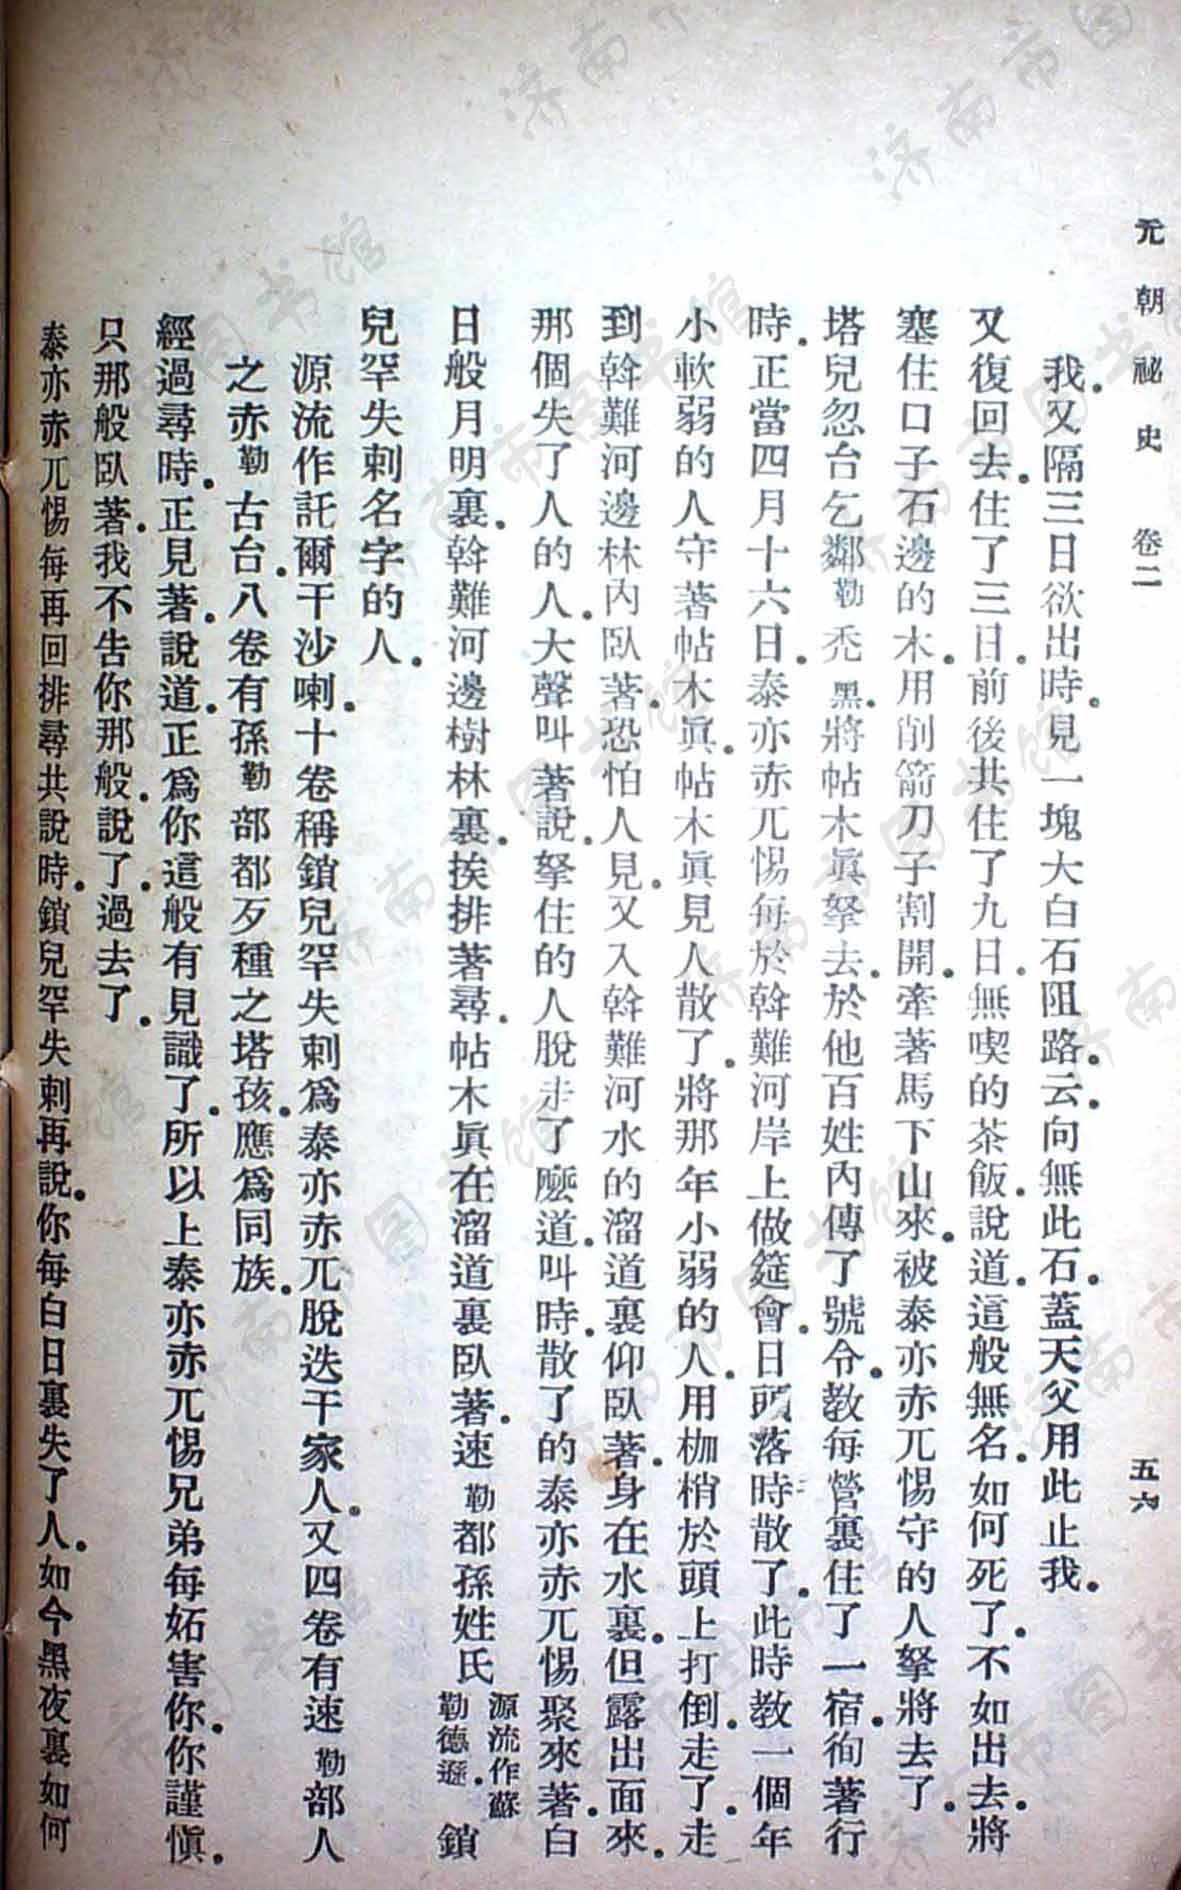 元朝祕史 卷二 五六
我。又隔三日欲出時。見一塊大白石阻路。云向無此石。蓋天父用此止我。
又復回去。住了三日。前後共住了九日。無喫的茶飯。說道。這般無名。如何死了。不如出去。將
塞住口子石邊的木。用削箭刀子割開。牽著馬下山來。被泰亦赤兀惕守的人拏將去了。
塔兒忽台乞鄰勒禿黑。將帖木眞拏去。於他百姓內傳了號令。教每營裏住了一宿。徇著行
時。正當四月十六日。泰亦赤兀惕每於斡難河岸上做筵會。日頭落時散了。此時教一個年
小軟弱的人守著帖木眞。帖木眞見人散了。將那年小弱的人。用枷梢於頭上打倒。走了。走
到斡難河邊林內臥著。恐怕人見。又入斡難河水的溜道裏仰臥著。身在水裏。但露出面來。
那個失了人的人。大聲叫著說。拏住的人脫走了麽道。叫時。散了的泰亦赤兀惕聚來著。白
日般月明裏。斡難河邊樹林裏。挨排著尋。帖木眞在溜道裏臥著。速勒都孫姓氏源流作蘇勒德遜。鎖
兒罕失剌名字的人。
源流作託爾干沙喇。十卷稱鎖兒罕失剌爲泰亦赤兀脫迭干家人。又四卷有速勒部人
之赤勒古台。八卷有孫勒部都歹種之塔孩。應爲同族。
經過尋時。正見著。說道。正爲你這般有見識了。所以上泰亦赤兀惕兄弟每妬害你。你謹愼。
只那般臥著。我不告你那般。說了。過去了。
泰亦赤兀惕每再回排尋共說時。鎖兒罕失剌再說。你每白日裏失了人。如今黑夜裏如何
济南市图书馆